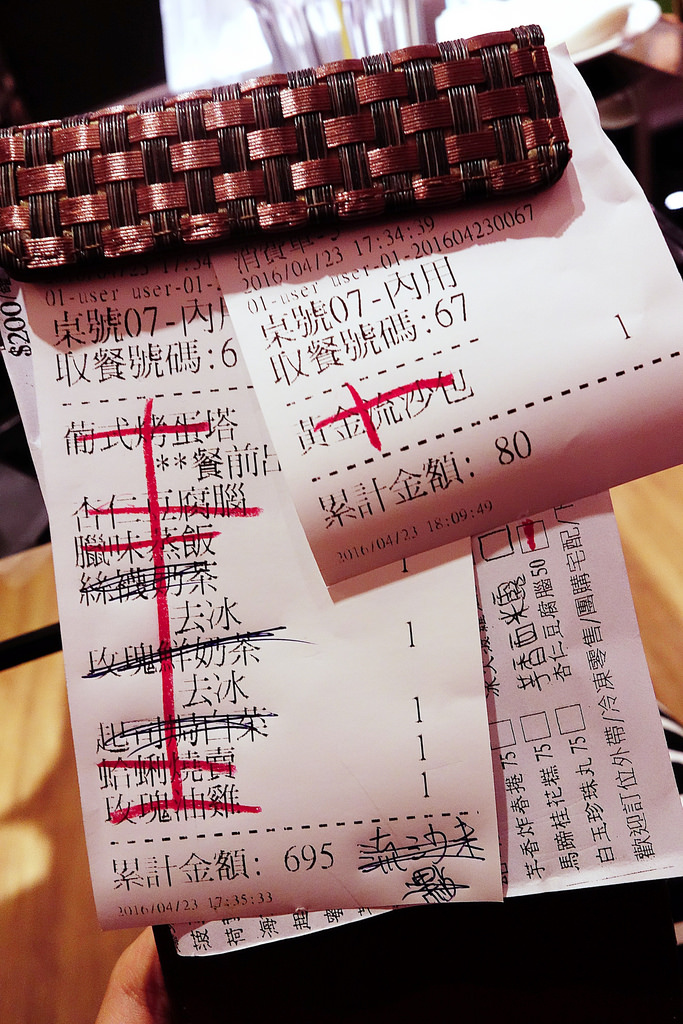 $200/
17:34
01-user user-01-
桌號07-內用
收餐號碼:6
葡式烤蛋塔
**餐前出
杏仁豆腐腦
臘味蒸飯
絲襪奶茶
去冰
玫瑰鮮奶茶 1
去冰
起司焗白菜 1
蛤蜊燒賣 1
玫瑰油雞 1
累計金額: 695
2016/04/23 17:35:33
消費單號
2016/04/23 17:34:39
01-user user-01-201604230067
桌號07-內用
收餐號碼:67
黃金流沙包 1
累計金額: 80
2016/04/23 18:09:49
芋香西米露
杏仁豆腐腦 50
芋香炸春捲 75
馬蹄桂花糕 75
白玉珍珠丸 75
歡迎訂位外帶/冷凍零售/團購宅配/